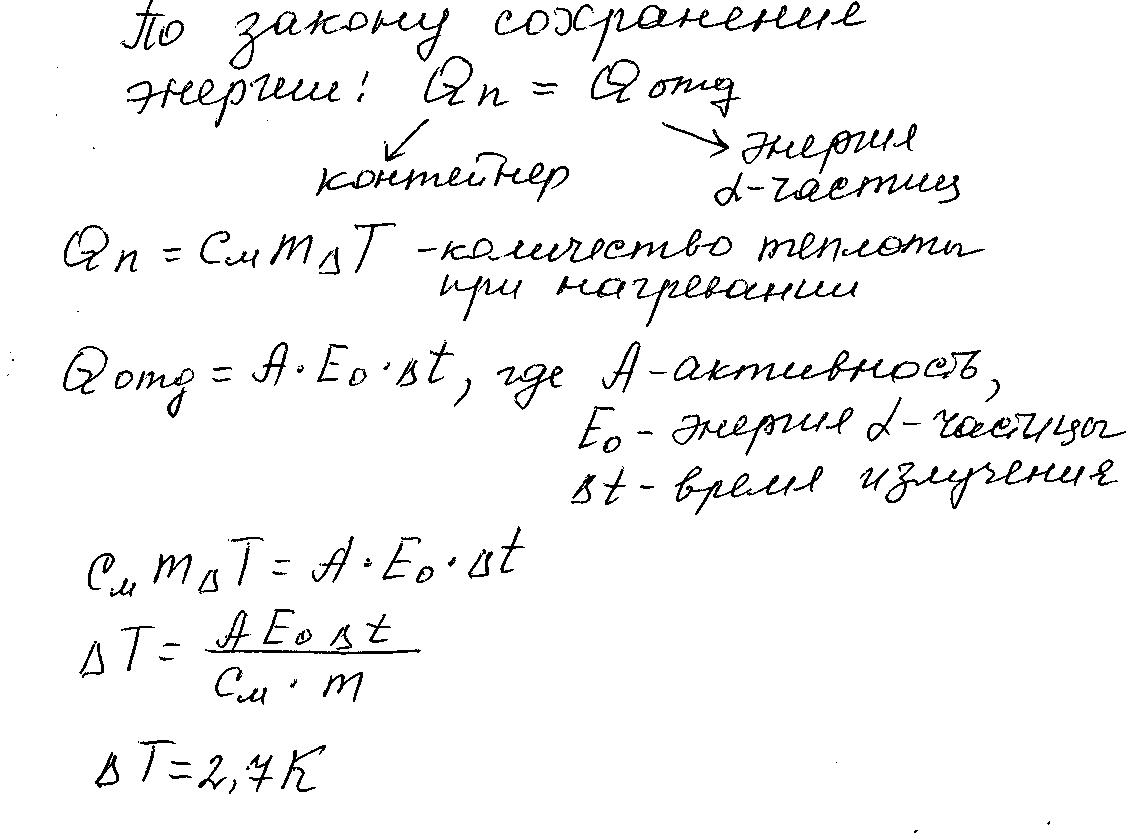 По закону сохранения
энергии: Qп = Qотд
контейнер
энергия
α-частиц
Qп = Cм m ΔT - количество теплоты
при нагревании
Qотд = A · E₀ · Δt, где A - активность,
E₀ - энергия α-частицы
Δt - время излучения
Cм m ΔT = A · E₀ · Δt
ΔT = A E₀ Δt / Cм · m
ΔT = 2,7 К